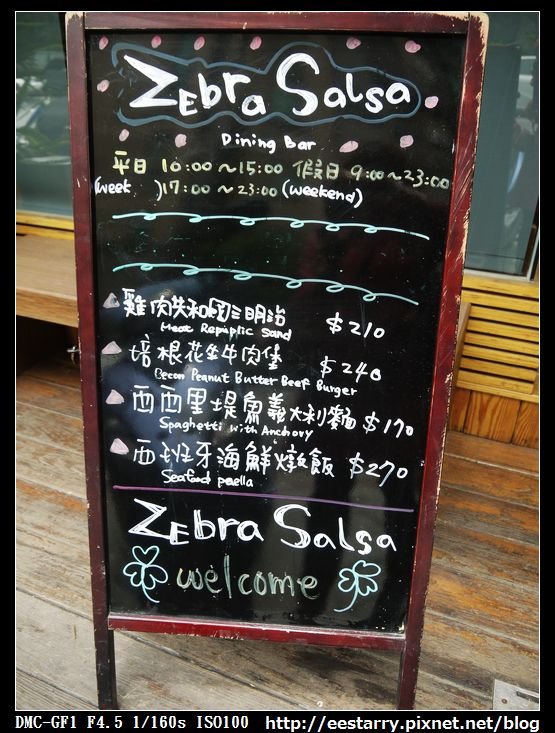 ZEbra Salsa
Dining Bar
平日 10:00~15:00 假日 9:00~23:00
(week )17:00~23:00 (weekend)
雞肉共和國三明治 $210
Meat Repuplic Sand
培根花生牛肉堡 $240
Becon Peanut Butter Beef Burger
西西里堤魚義大利麵 $190
Spaghetti with Anchovy
西班牙海鮮燉飯 $270
Seafood paella
ZEbra Salsa
welcome
DMC-GF1 F4.5 1/160s ISO100 http://eestarry.pixnet.net/blog